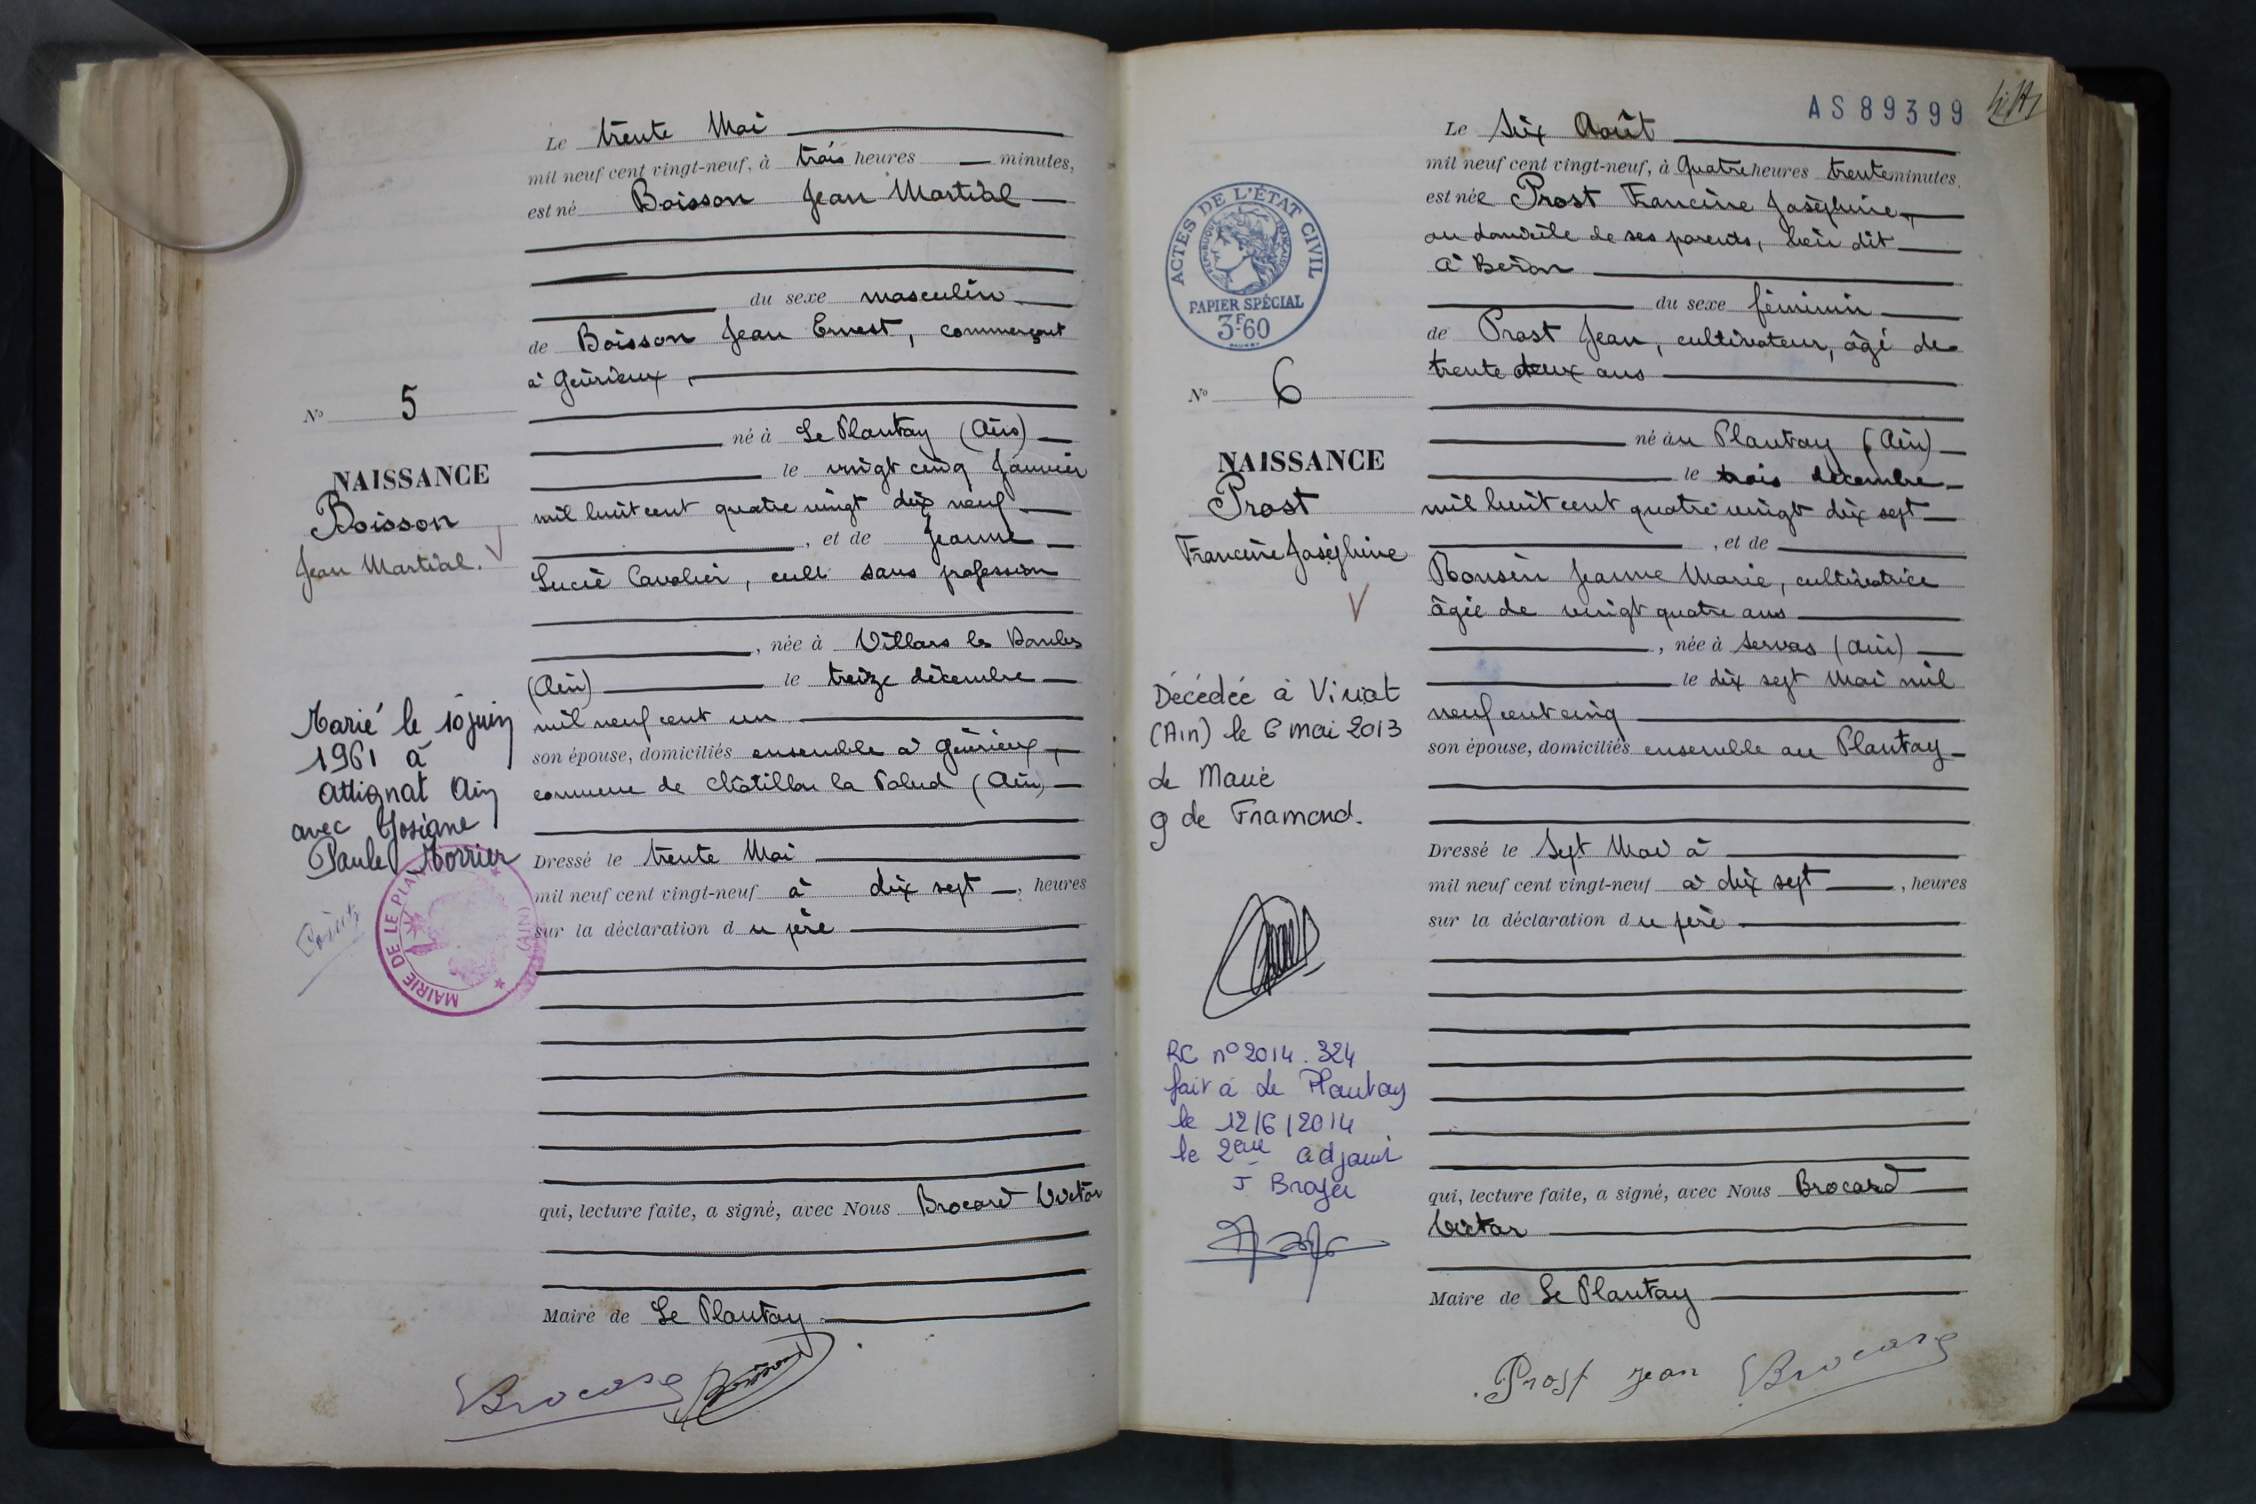 Le trente Mai
mil neuf cent vingt-neuf, à trois heures minutes,
est né Boisson Jean Martial
du sexe masculin
de Boisson Jean Ernest, commerçant
à Gévrieux,
né à Le Plantay (Ain)
le vingt cinq Janvier
mil huit cent quatre vingt dix neuf
, et de Jeanne
Lucie Cavalier, cult sans profession
, née à Villars les Dombes
(Ain) le treize décembre
mil neuf cent un
son épouse, domiciliés ensemble à Gévrieux,
commune de Châtillon la Palud (Ain)
Dressé le trente Mai
mil neuf cent vingt-neuf à dix sept, heures
sur la déclaration du père
qui, lecture faite, a signé, avec Nous Brocard Victor
Maire de Le Plantay
Brocard Boisson
No 5
NAISSANCE
Boisson
Jean Martial.
Marié le 10 juin
1961 à
Attignat Ain
avec Josiane
Paule Morrier
MAIRIE DE LE PLAN (AIN)
AS89399
Le Six Août
mil neuf cent vingt-neuf, à quatre heures trente minutes.
est née Prost Francine Joséphine,
au domicile de ses parents, lieu dit
à Beron
du sexe féminin
de Prost Jean, cultivateur, âgé de
trente deux ans
né au Plantay (Ain)
le trois décembre
mil huit cent quatre vingt dix sept
, et de
Ronsin Jeanne Marie, cultivatrice
âgée de vingt quatre ans
, née à Servas (Ain)
le dix sept Mai mil
neuf cent cinq
son épouse, domiciliés ensemble au Plantay
Dressé le Sept Mai à
mil neuf cent vingt-neuf à dix sept, heures
sur la déclaration du père
qui, lecture faite, a signé, avec Nous Brocard
Victor
Maire de Le Plantay
Prost Jean Brocard
ACTES DE L'ÉTAT CIVIL
RÉPUBLIQUE FRANÇAISE
PAPIER SPÉCIAL
3F60
No 6
NAISSANCE
Prost
Francine Joséphine
Décédée à Viriat
(Ain) le 6 mai 2013
Le Maire
g de Framond.
RC n° 2014.324
fait à Le Plantay
le 12/6/2014
le 2ème adjoint
J Broyer